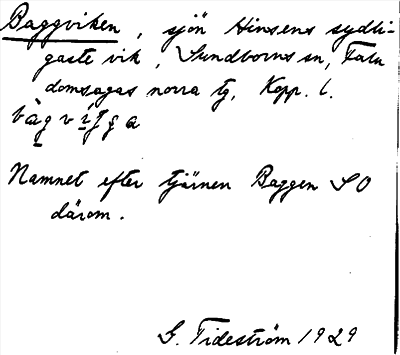 Baggviken, sjön Hinsens sydli-
gaste vik, Sundborns sn, Falu
domsagas norra tg, Kopp. l.
Namnet efter tjärnen Baggen SO
därom.
G. Tideström 1929